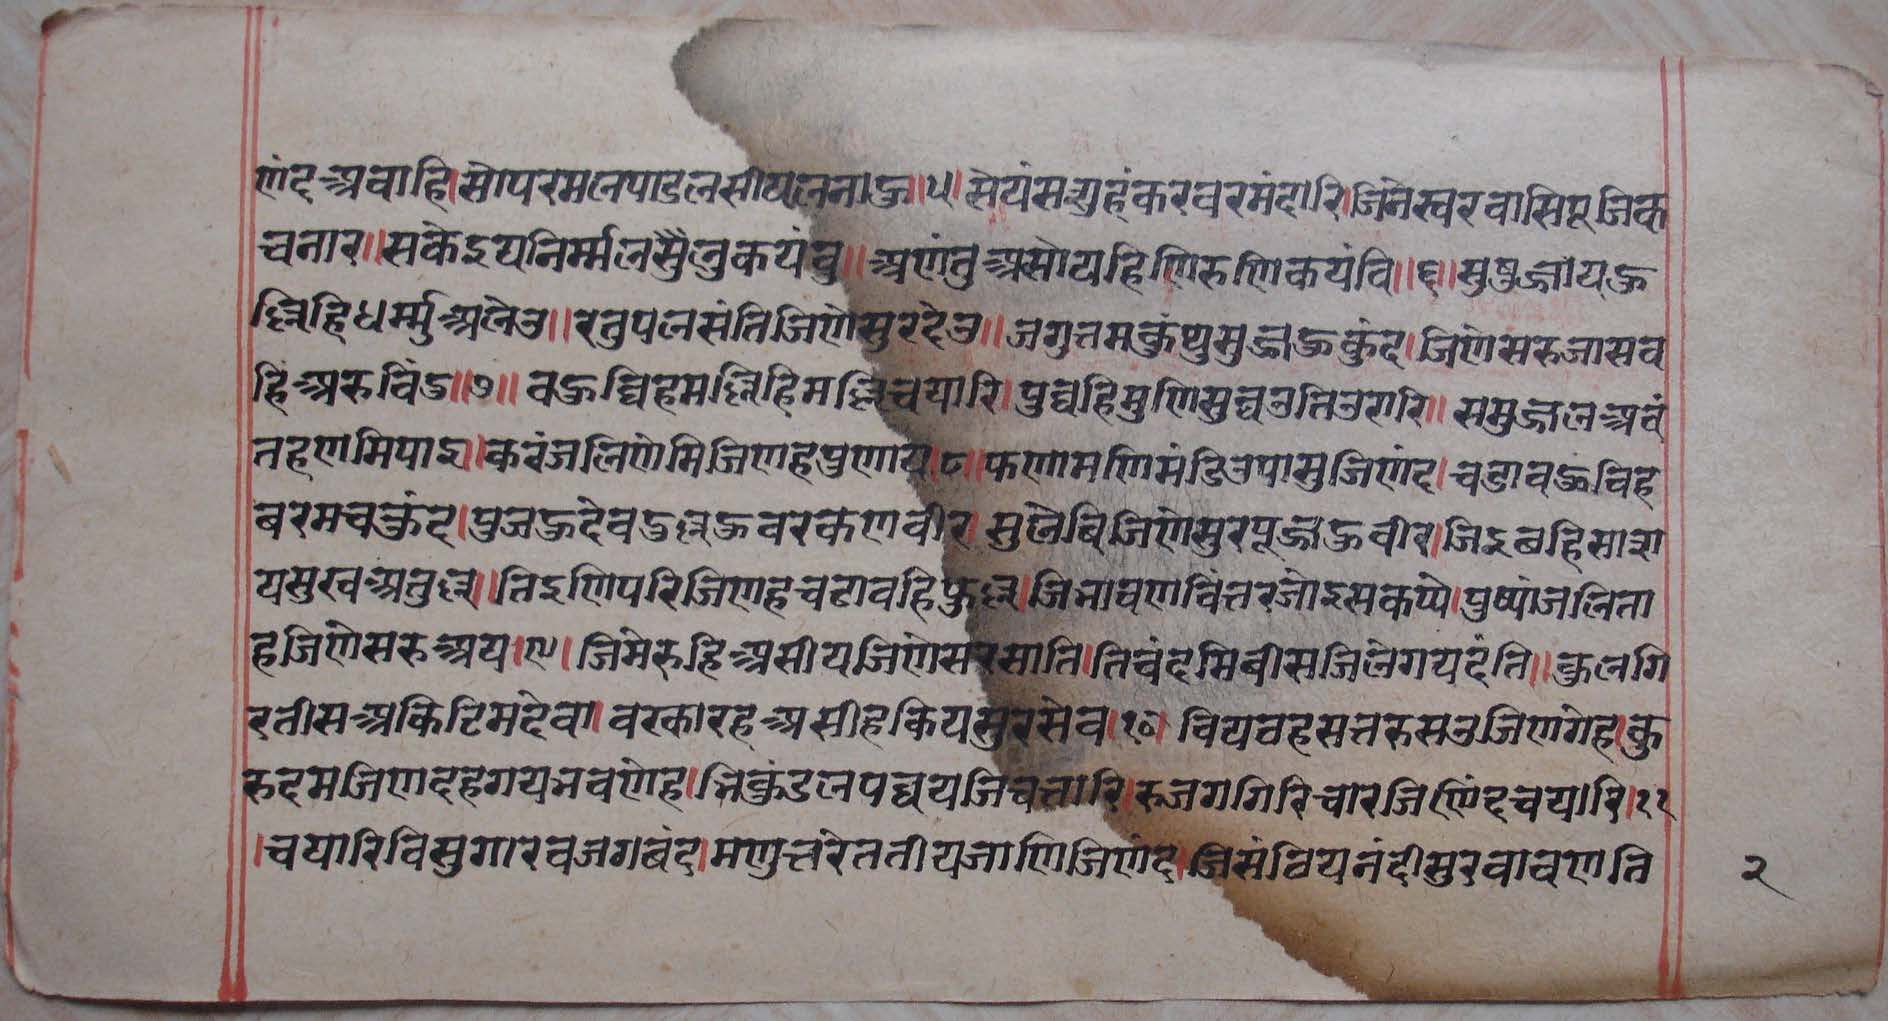 णंद अवाहि।सोपरमलपाडलसीयलनाऊ॥५।सेयंसगुहंकरवरमंदारि।जिनेस्वरवासिपूजिक
चनार॥सकेइयनिर्म्मलसैलुकयंवु॥अणंतुअसोयहिणिरुणिकयंवि॥६॥मुषुज्जायऊ
ल्लिहिधर्म्मुअलेउ॥रतुपलसंतिजिणेसुरदेउ॥जगुत्तमकुंथुमुज्जाऊकुंद।जिणेसरुजासव
हिंअरुविंड॥७॥वऊव्विहमल्लिहिमल्लिचयारि।पुव्वहिमुणिसुव्वउतिउणरि॥समुज्जलअवं
तहणमिपाइ।करंजलिणेमिजिणहपुणाय।८॥फणामणिमंडिउपासुजिणंद।चडावऊंविह
बरमचकुंद।पुजऊदेवडल्लऊवरकणवीर।मुलेबिजिणेसुरपूज्जऊवीर।जिइबहिसारा
यसुखअतुल्ल॥तिइणिपरिजिणहचटावहिफुल्ल।जिभावणविंतरजोइसकप्पे।पुष्पांजलिता
हजिणेसरुअय।९।जिमेरुहिअसीयजिणेसरसाति।तिवंदमिबीसजिलेगयदंति॥कुलगि
रतीसअकिट्टिमदेवा।वरकारहअसीहकियसुरसेव।१०।वियवहसत्तरुसउजिणगेह।कु
रुदमजिणदहगयमवणेह।भिकुंडलपव्वयजिवत्तारि।रुजगगिरिचारजिणिंदचयारि।११
।चयारिविसुगारवजगबंद।मणुत्तरेततीयजाणिजिणंद।जिसंवियनंदीसुरवावणति
२